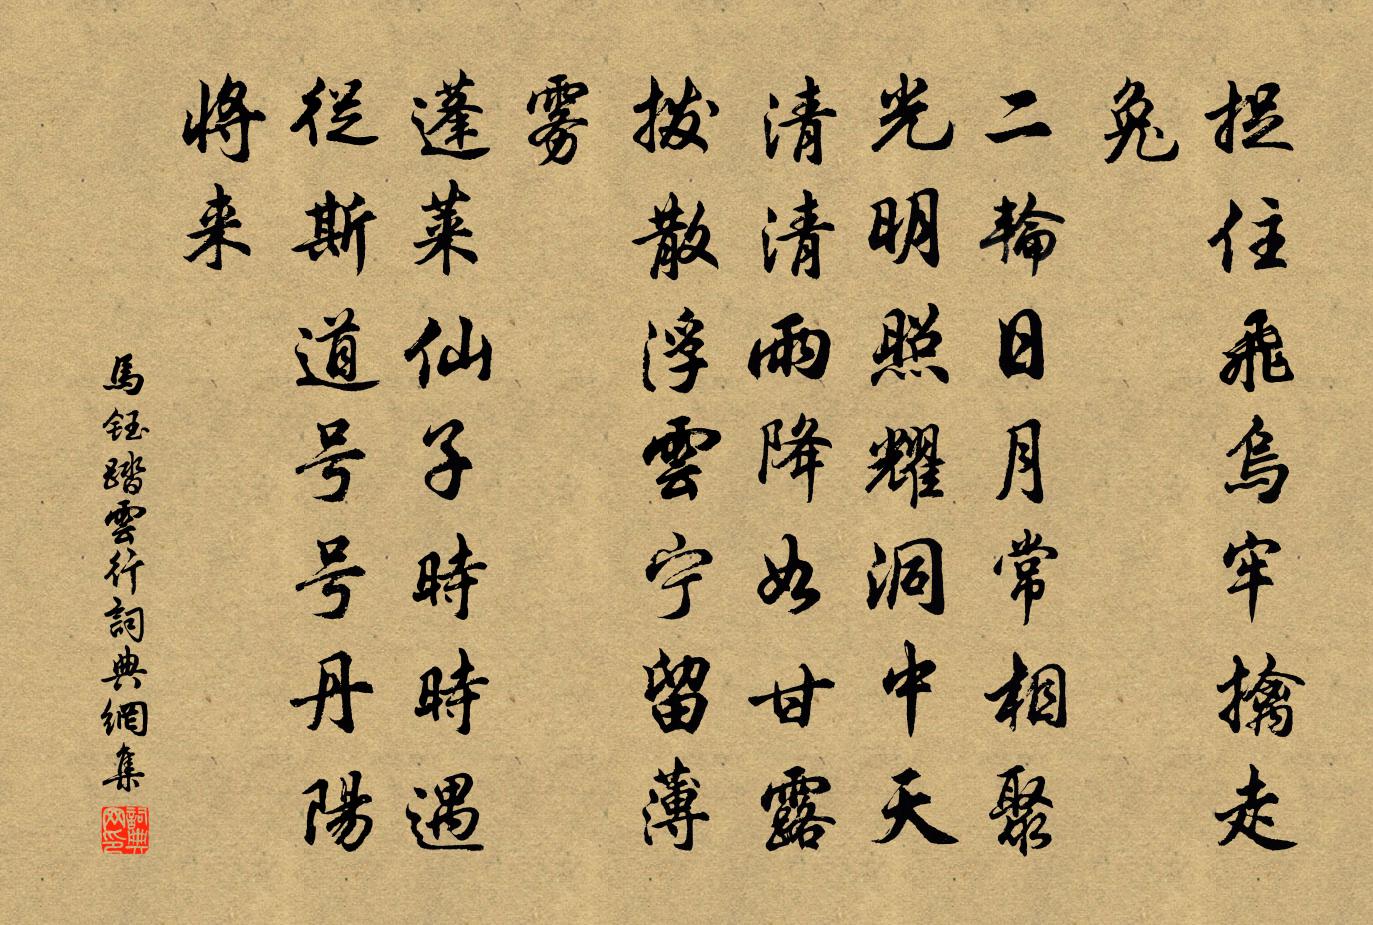 捉住飛烏牢擒走
兔
二輪日月常相聚
光明照耀洞中天
清清雨降如甘露
撥散浮雲宁留薄
雾
蓬莱仙子時時遇
從斯道号号丹陽
將来
馬鈺踏雲行詞典網集
詞典網印